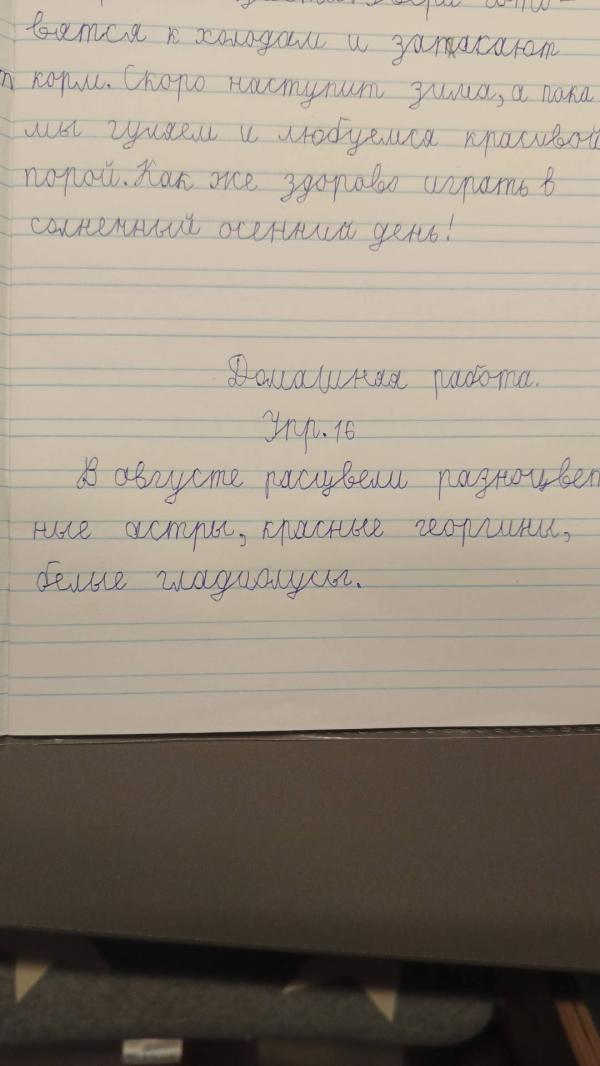 вятся к холодам и запасают
корм. Скоро наступит зима, а пока
мы гуляем и любуемся красивой
порой. Как же здорово играть в
солнечный осенний день!
Домашняя работа.
Упр. 16
В августе расцвели разноцвет
ные астры, красные георгины,
белые гладиолусы.